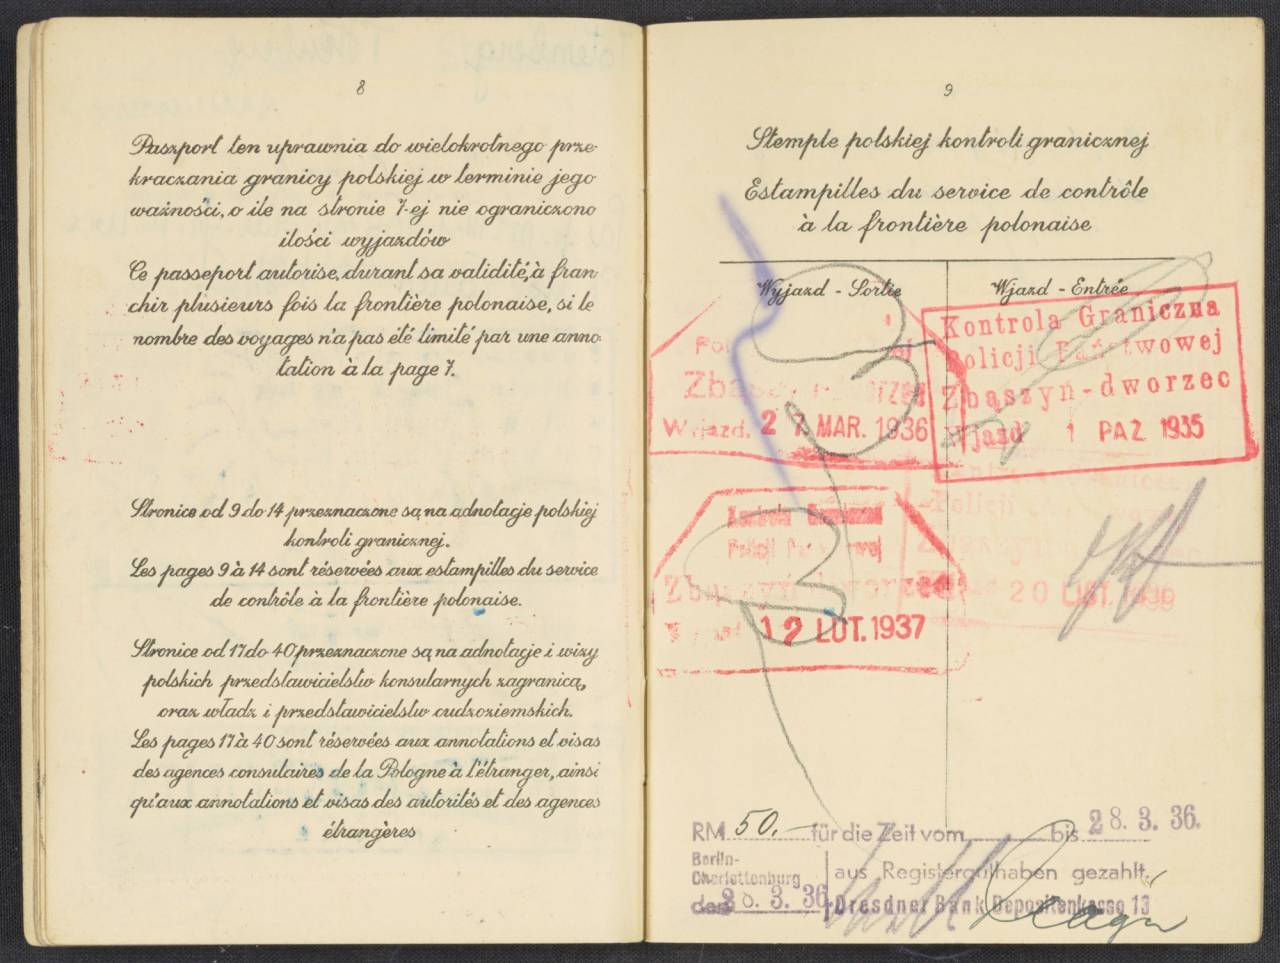 8
Paszport ten uprawnia do wielokrotnego prze-
kraczania granicy polskiej w terminie jego
ważności, o ile na stronie 7-ej nie ograniczono
ilości wyjazdów
Ce passeport autorise, durant sa validité, à fran-
chir plusieurs fois la frontière polonaise, si le
nombre des voyages n'a pas été limité par une anno-
tation à la page 7.
Stronice od 9 do 14 przeznaczone są na adnotacje polskiej
kontroli granicznej.
Les pages 9 à 14 sont réservées aux estampilles du service
de contrôle à la frontière polonaise.
Stronice od 17 do 40 przeznaczone są na adnotacje i wizy
polskich przedstawicielstw konsularnych zagranicą,
oraz władz i przedstawicielstw cudzoziemskich.
Les pages 17 à 40 sont réservées aux annotations et visas
des agences consulaires de la Pologne à l'étranger, ainsi
qu'aux annotations et visas des autorités et des agences
étrangères
9
Stemple polskiej kontroli granicznej
Estampilles du service de contrôle
à la frontière polonaise
Wyjazd - Sortie
Wjazd - Entrée
Wyjazd. 27 MAR. 1936
Kontrola Graniczna
Policji Państwowej
Zbąszyń-dworzec
Wjazd 1 PAŹ 1935
Kontrola Graniczna
Zbąszyń
12 LUT. 1937
Policji
20 LIST.
RM 50.- für die Zeit vom bis 28. 3. 36.
Berlin-
Charlottenburg
den 28. 3. 36
aus Registerguthaben gezahlt.
Dresdner Bank Depositenkasse 13